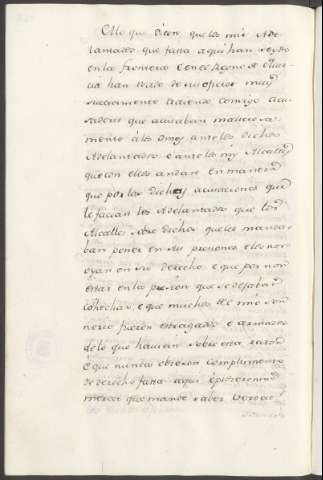 Otro que dicen que los mis Ade
lantados que fasta aqui han seydo
en la frontera e en el Regno de Mur
cia han usado de sus oficios muy
sueltamente trayendo consigo acu
sadores que acusaban maliciosa
mente á los omes ante los dichos
Adelantados e ante los mis Alcalles
que con ellos andan en manera
que por las dichas acusaciones que
le facian los Adelantados que los
Alcalles sobre dichos que les manda
ban poner en su prisiones e les non
oyan en su derecho e que por non
estar en la prision que se dejaban
cohechar, e que muchos de mio Se
ñorio fueron estragados e
de lo que havian sobre esta razon
e que nunca obieron cumplimiento
de derecho fasta aqui e pidieronme
merced que mande saber verdad